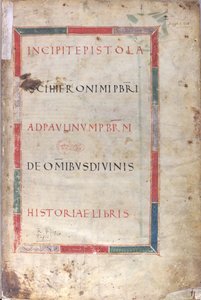 INCIPITEPISTOLA
SCIHIERONIMIPBRI
ADPAULINUMPBRM
DEOMIBUSDIUINIS
HISTORIAELIBRIS